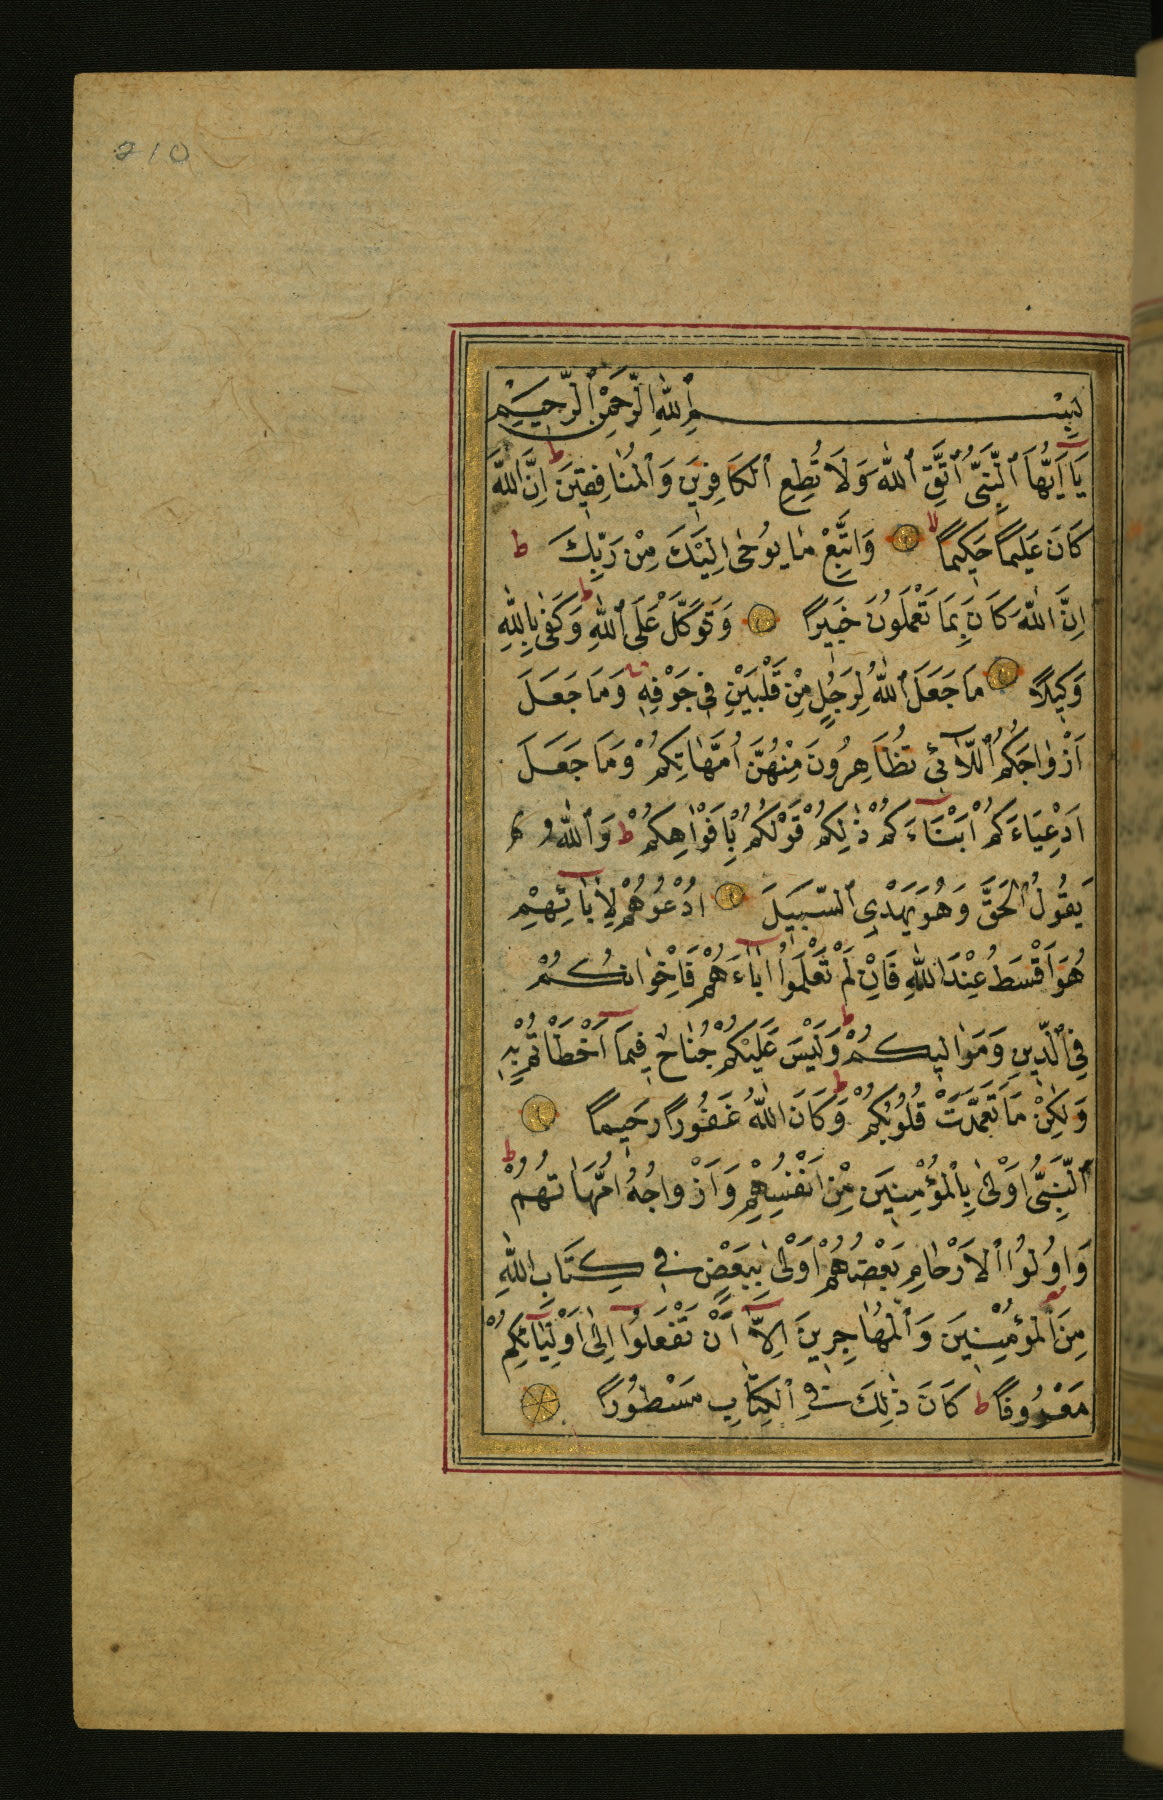 210
بِسْمِ ٱللّٰهِ ٱلرَّحْمٰنِ ٱلرَّحِيمِ
يَآ اَيُّهَا ٱلنَّبِىُّ ٱتَّقِ ٱللّٰهَ وَلَا تُطِعِ ٱلْكَافِرِينَ وَٱلْمُنَافِقِينَ ط اِنَّ اللّٰهَ
كَانَ عَلِيمًا حَكِيمًا لا وَاتَّبِعْ مَا يُوحٰى اِلَيْكَ مِنْ رَبِّكَ ط
اِنَّ اللّٰهَ كَانَ بِمَا تَعْمَلُونَ خَبِيرًا وَتَوَكَّلْ عَلَى ٱللّٰهِ ط وَكَفٰى بِاللّٰهِ
وَكِيلًا مَا جَعَلَ ٱللّٰهُ لِرَجُلٍ مِنْ قَلْبَيْنِ فِى جَوْفِهٖ وَمَا جَعَلَ
اَزْوَاجَكُمُ ٱللَّآئِى تُظَاهِرُونَ مِنْهُنَّ اُمَّهَاتِكُمْ وَمَا جَعَلَ
اَدْعِيَاءَكُمْ اَبْنَآءَكُمْ ذٰلِكُمْ قَوْلُكُمْ بِاَفْوَاهِكُمْ ط وَٱللّٰهُ
يَقُولُ ٱلْحَقَّ وَهُوَ يَهْدِى ٱلسَّبِيلَ اُدْعُوهُمْ لِاٰبَآئِهِمْ
هُوَ اَقْسَطُ عِنْدَ اللّٰهِ فَاِنْ لَمْ تَعْلَمُوٓا اٰبَآءَهُمْ فَاِخْوَانُكُمْ
فِى ٱلدِّينِ وَمَوَالِيكُمْ ط وَلَيْسَ عَلَيْكُمْ جُنَاحٌ فِيمَآ اَخْطَاْتُمْ بِهٖ
وَلٰكِنْ مَا تَعَمَّدَتْ قُلُوبُكُمْ ط وَكَانَ اللّٰهُ غَفُورًا رَحِيمًا
ٱلنَّبِىُّ اَوْلٰى بِالْمُؤْمِنِينَ مِنْ اَنْفُسِهِمْ وَاَزْوَاجُهُ اُمَّهَاتُهُمْ ط
وَاُولُوا ٱلْاَرْحَامِ بَعْضُهُمْ اَوْلٰى بِبَعْضٍ فِى كِتَابِ اللّٰهِ
مِنَ ٱلْمُؤْمِنِينَ وَٱلْمُهَاجِرِينَ اِلَّآ اَنْ تَفْعَلُوٓا اِلٰٓى اَوْلِيَآئِكُمْ
مَعْرُوفًا ط كَانَ ذٰلِكَ فِى ٱلْكِتَابِ مَسْطُورًا